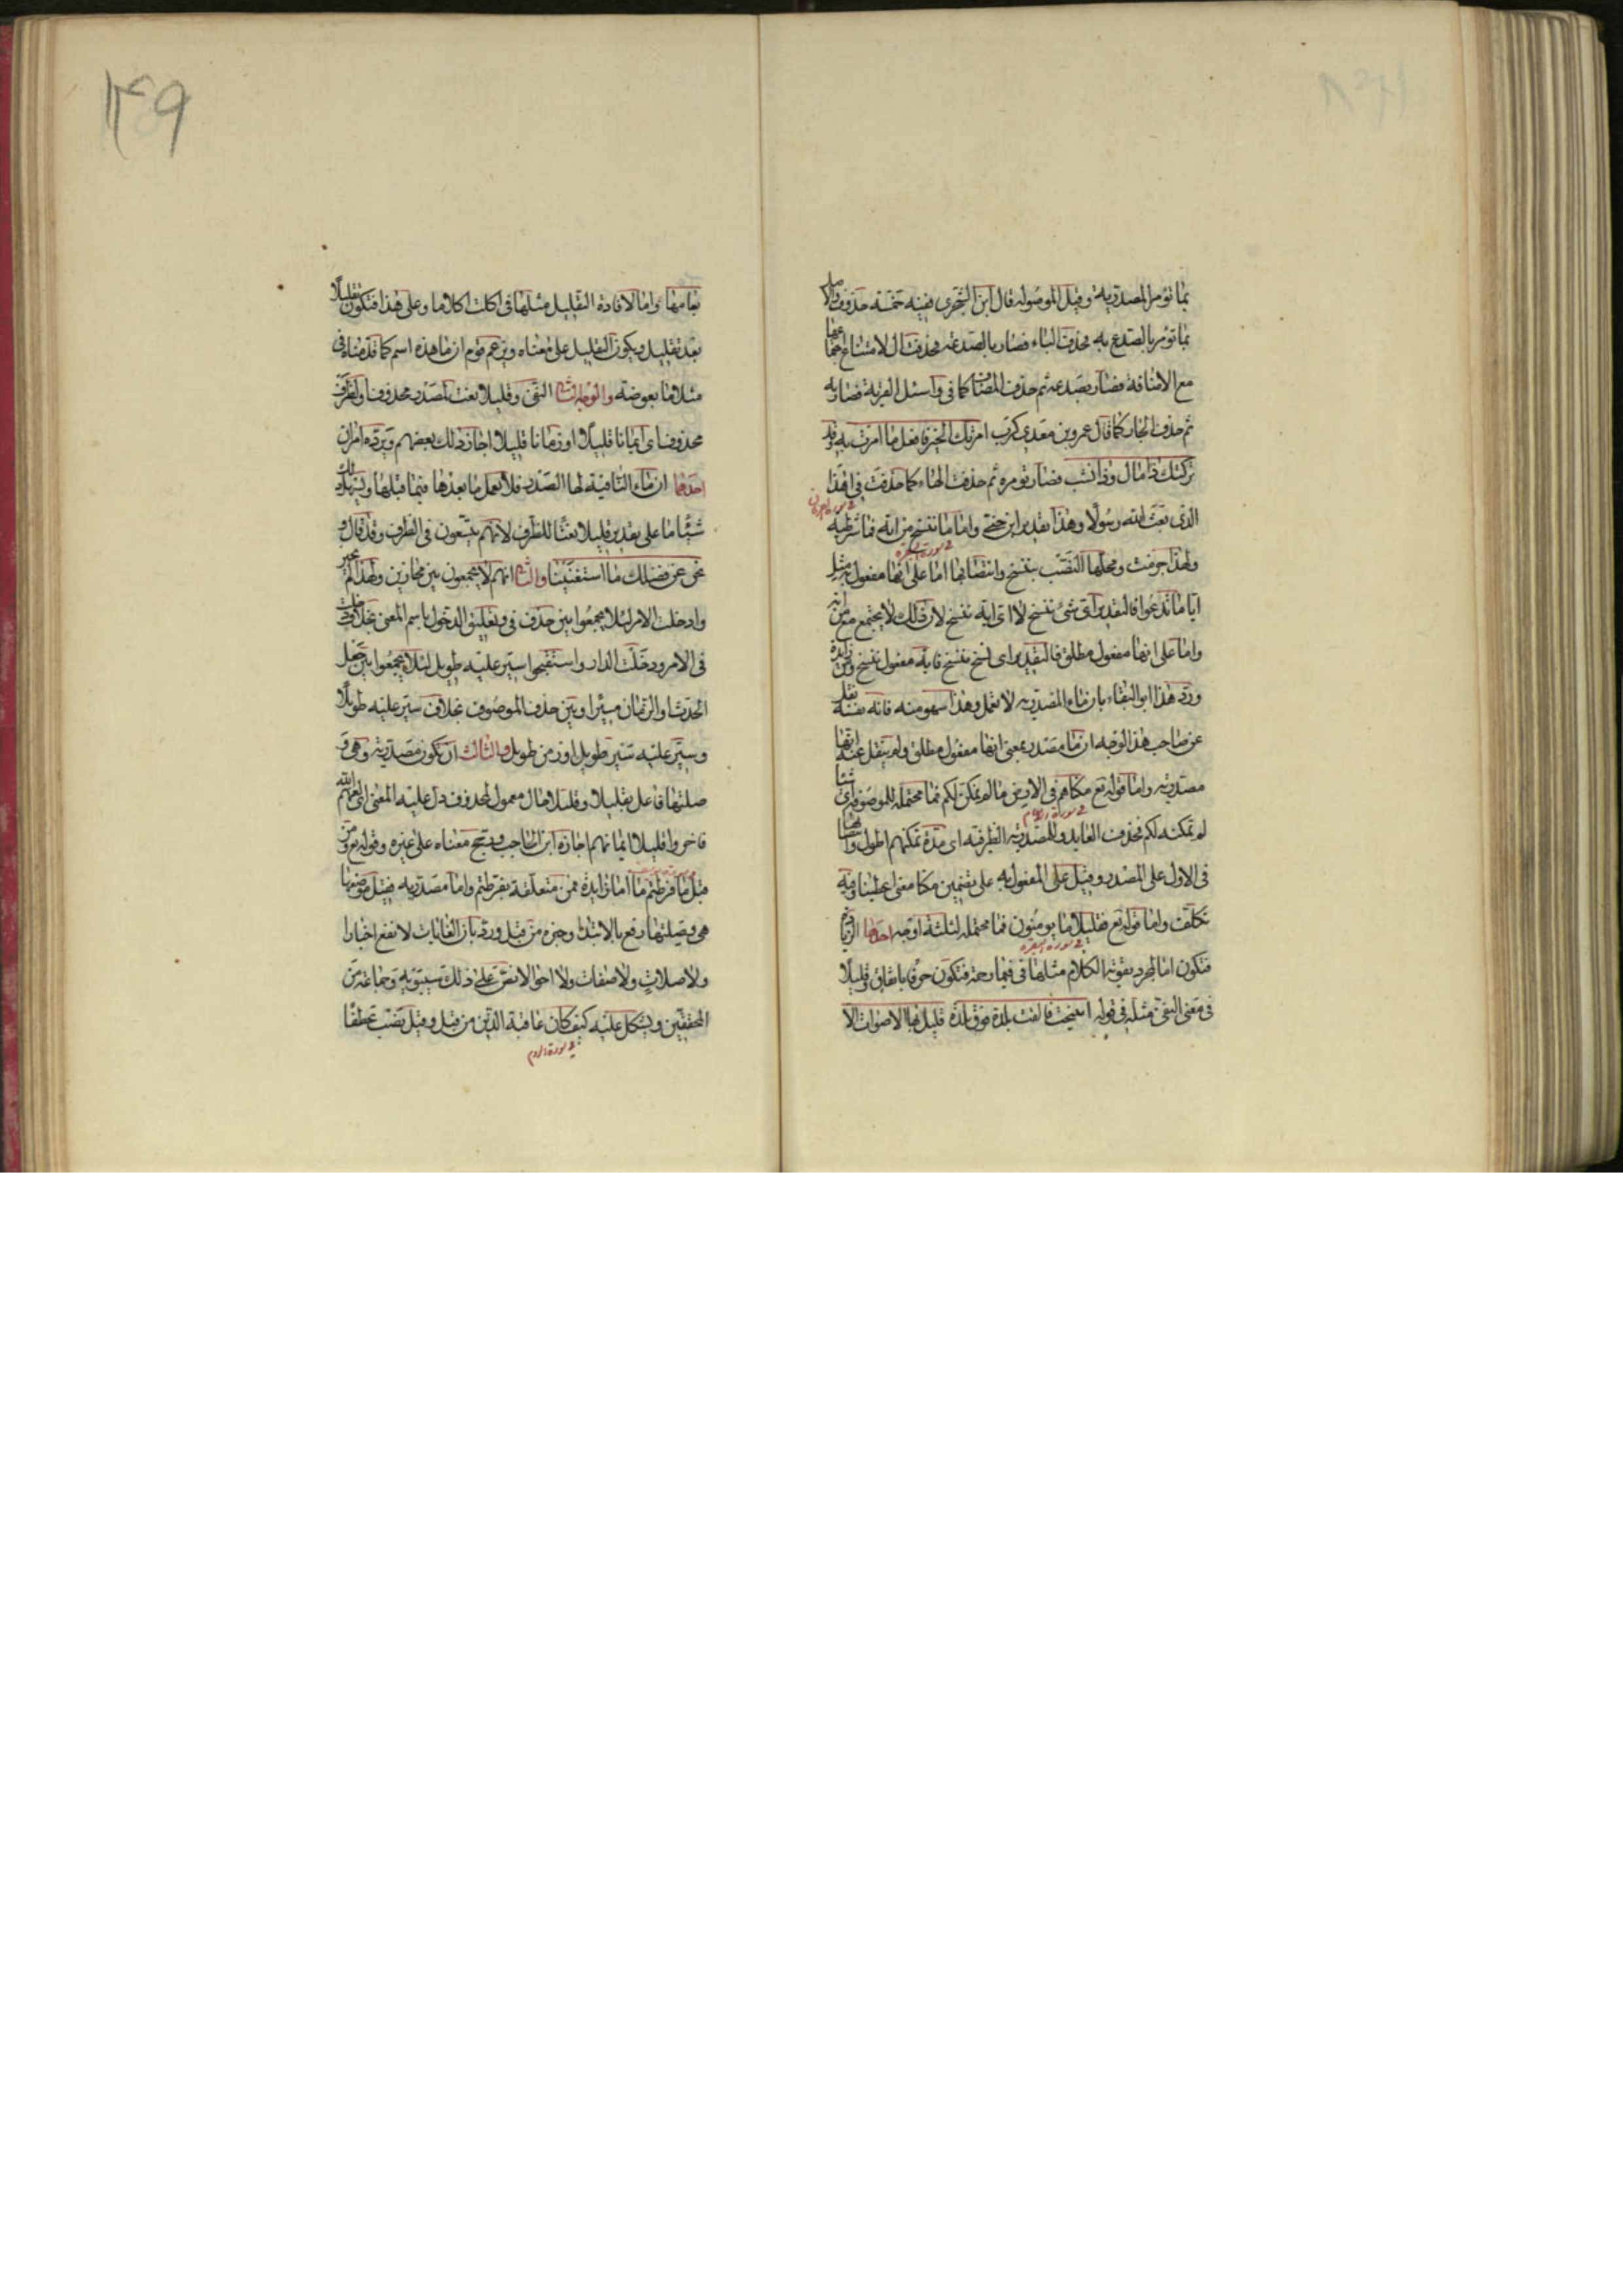 بما تؤمر المصدرية وقيل الموصولة قال ابن الشجرى ففيه خمسة حذوف والاصل
بما تؤمر بالصدع به فحذفت الباء فصار بالصدعه فحذفت ال لامتناع جمعها
مع الاضافة فصار بصدعه ثم حذف المضاف كما فى واسئل القرية فصار به
ثم حذف الجار كما قال عمرو بن معدى كرب امرتك الخير فافعل ما امرت به وقد
تركتك ذا مال وذا نشب فصار تؤمره ثم حذفت الهاء كما حذفت فى اهذا
الذى بعث الله رسولا وهذا تقدير ابن جنى واما ما ننسخ من اية فما شرطية
ولهذا جزمت ومحلها النصب بننسخ وانتصابها اما على انها مفعول به مثل
فى سورة البقره
ايا ما تدعوا فالتقدير اى شئ ننسخ لا اى اية ننسخ لان ذلك لا يجتمع مع من اية
واما على انها مفعول مطلق فالتقدير اى نسخ ننسخ فاية مفعول ننسخ ومن زايدة
ورد هذا ابو البقاء بان ماء المصدرية لا تعمل وهذا سهو منه فانه نفسه نقل
عن صاحب هذا الوجه ان ما مصدر بمعنى انها مفعول مطلق ولم ينقل عنه انها
مصدرية واما قوله تع مكناهم فى الارض ما لم نمكن لكم فما محتملة للموصوفة اى شيئا
فى سورة الانعام
لم نمكنه لكم فحذف العايد وللمصدرية الظرفية اى مدة تمكنهم اطول وانتصابها
فى الاول على المصدر وقيل على المفعول به على تضمين مكنا معنى اعطينا وفيه
تكلف واما قوله تع فقليلا ما يومنون فما محتملة لثلثة اوجه احدها الزيادة
فى سورة البقره
فتكون اما لمجرد تقوية الكلام مثلها فى فبما رحمة فتكون حرفا باتفاق وقليلا
فى معنى النفى مثله فى قوله انيخت فالقت بلدة فوق بلدة قليل بها الاصوات الا
١٤٩
بغامها واما لافادة التقليل مثلها فى اكلت اكلا ما وعلى هذا فتكون تقليلا
بعد تقليل ويكون التقليل على معناه ويزعم قوم ان ما هذه اسم كما قدمناه فى
مثلا ما بعوضة والوجه الثانى النفى وقليلا نعت لمصدر محذوف او لظرف
محذوف اى ايمانا قليلا او زمانا قليلا اجاز ذلك بعضهم ويرده امران
احدهما ان ماء النافية لها الصدر فلا يعمل ما بعدها فيما قبلها ويسهل ذلك
شيئا ما على تقدير قليلا نعتا للظرف لانهم يتسعون فى الظرف وقد قال و
نحن عن فضلك ما استغنينا والثانى انهم لا يجمعون بين مجازين ولهذا لم يجيزوا
وادخلت الامر لئلا يجمعوا بين حذف فى وتعليق الدخول باسم المعنى بخلاف دخلت
فى الامر ودخلت الدار واستقبحوا سير عليه طويل لئلا يجمعوا بين جعل
الحدث او الزمان مسيرا وبين حذف الموصوف بخلاف سير عليه طويلا
وسير عليه سير طويل او زمن طويل والثالث ان تكون مصدرية وهى و
صلتها فاعل بقليلا وقليلا حال معمول لمحذوف دل عليه المعنى اى لعنهم الله
فاخروا قليلا ايمانهم اجازه ابن الحاجب ورجح معناه على غيره وقوله تع ومن
قبل ما فرطتم ما اما زايدة فمن متعلقة بفرطتم واما مصدرية فقيل موضعها
هى وصلتها رفع بالابتداء وخبره من قبل ورد بان الغايات لا تقع اخبارا
ولا صلات ولا صفات ولا احوالا نص على ذلك سيبويه وجماعة من
المحققين ويشكل عليه كيف كان عاقبة الذين من قبل وقيل نصب عطفا
فى سورة الروم